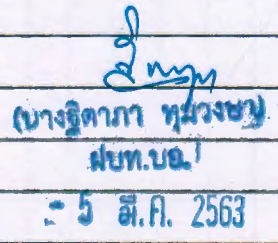 (นางฐิดาภา ทุมวงษา)
ฝบท.บอ.
- 5 มี.ค. 2563